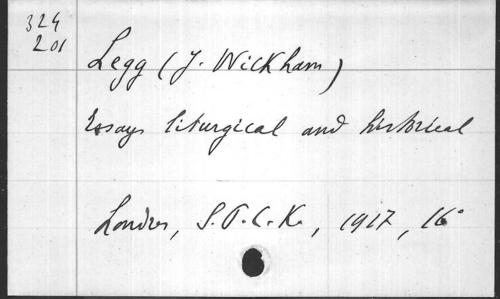 324
201
Legg (J. Wickham)
Essays liturgical and historical
Londres, S.P.C.K., 1917, 16°